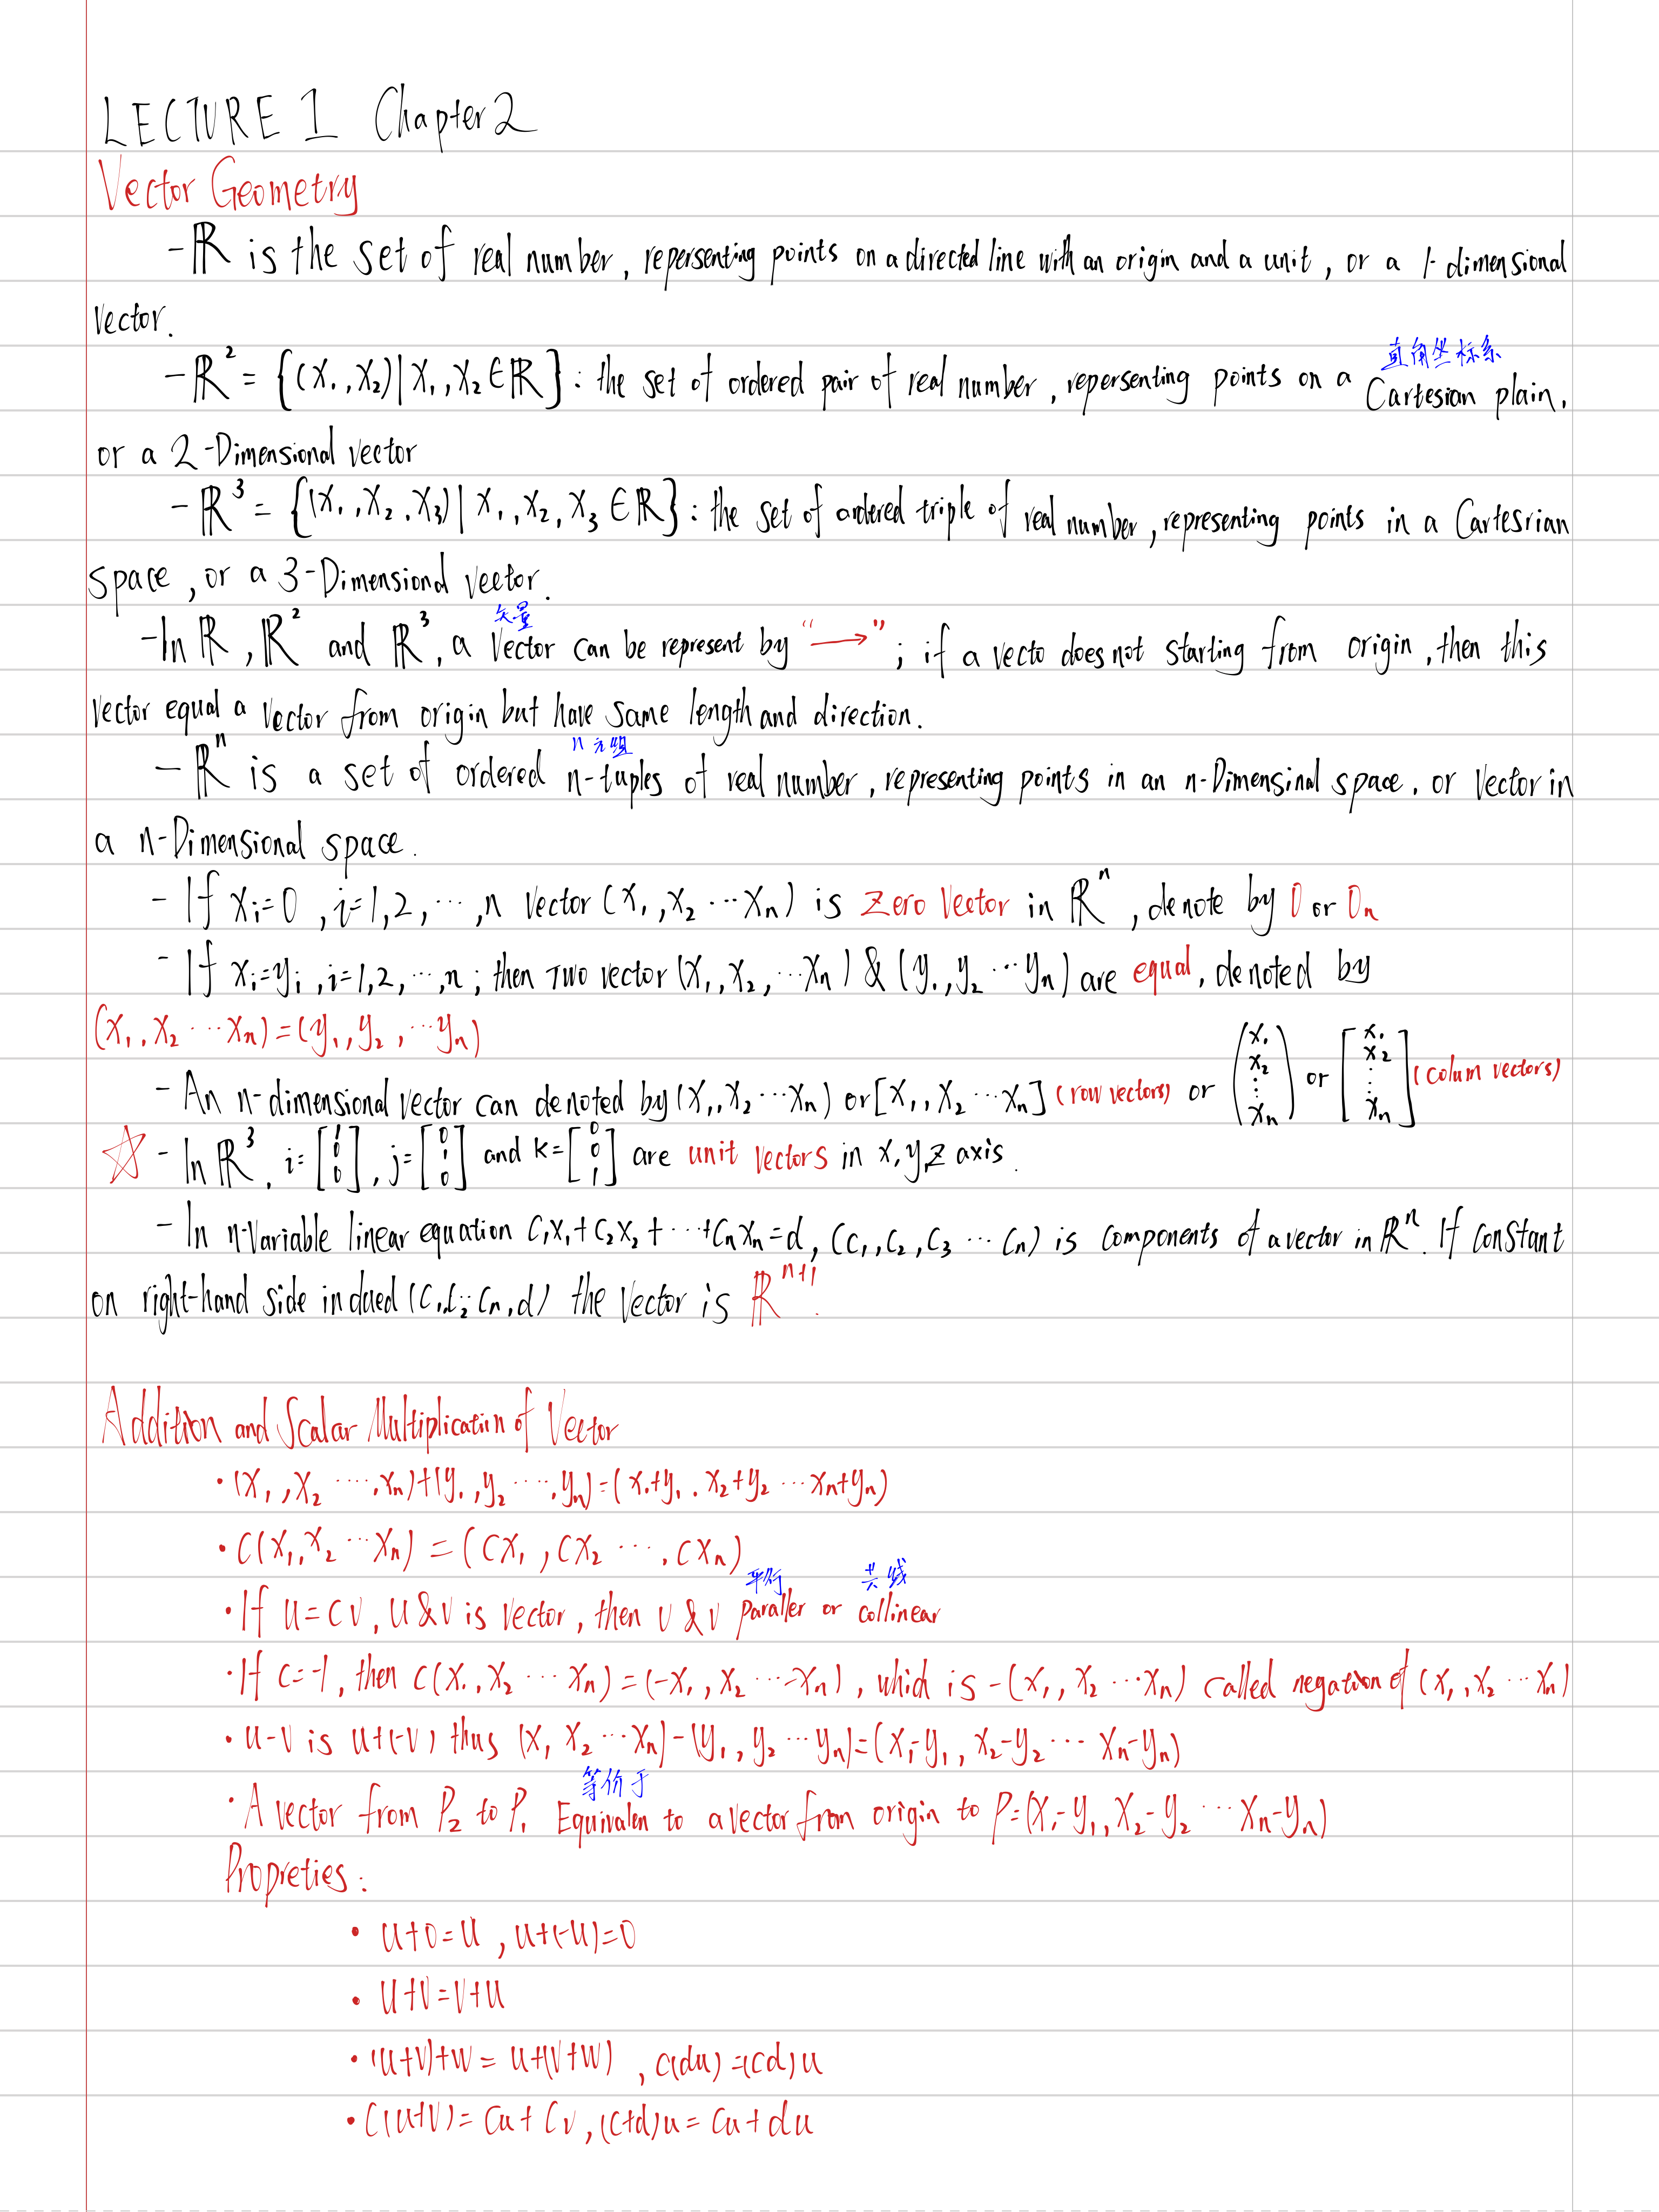 LECTURE 1 Chapter 2
Vector Geometry
- ℝ is the set of real number, repersenting points on a directed line with an origin and a unit, or a 1-dimensional
vector.
直角坐标系
- ℝ² = {(X₁, X₂) | X₁, X₂ ∈ ℝ} : the set of ordered pair of real number, repersenting points on a Cartesian plain,
or a 2-Dimensional vector
- ℝ³ = {(X₁, X₂, X₃) | X₁, X₂, X₃ ∈ ℝ} : the set of ordered triple of real number, representing points in a Cartesrian
space, or a 3-Dimensional vector.
矢量
- In ℝ, ℝ² and ℝ³, a vector can be represent by "→" ; if a vecto does not starting from origin, then this
vector equal a vector from origin but have same length and direction.
n元组
- ℝⁿ is a set of ordered n-tuples of real number, representing points in an n-Dimensinal space, or vector in
a n-Dimensional space.
- If xᵢ=0, i=1,2,⋯,n vector (x₁, x₂ ⋯ xₙ) is zero vector in ℝⁿ, denote by 0 or 0ₙ
- If xᵢ=yᵢ, i=1,2,⋯,n ; then Two vector (x₁, x₂, ⋯ xₙ) & (y₁, y₂ ⋯ yₙ) are equal, denoted by
(x₁, x₂ ⋯ xₙ) = (y₁, y₂, ⋯ yₙ)
- An n-dimensional vector can denoted by (x₁, x₂ ⋯ xₙ) or [x₁, x₂ ⋯ xₙ] (row vectors) or (x₁ x₂ ⋮ xₙ) or [x₁ x₂ ⋮ xₙ] (colum vectors)
☆ - In ℝ³, i=[1 0 0], j=[0 1 0] and k=[0 0 1] are unit vectors in x,y,z axis.
- In n-variable linear equation C₁x₁+C₂x₂+⋯+Cₙxₙ=d, (C₁, C₂, C₃ ⋯ Cₙ) is components of a vector in ℝⁿ. If constant
on right-hand side indued (C₁,C₂⋯Cₙ,d) the vector is ℝⁿ⁺¹.
Addition and Scalar Multiplication of Vector
• (X₁, X₂ ⋯, xₙ)+(y₁, y₂ ⋯, yₙ)=(x₁+y₁, x₂+y₂ ⋯ xₙ+yₙ)
• C(x₁, x₂ ⋯ xₙ) = (Cx₁, Cx₂ ⋯, Cxₙ)
平行 共线
• If u=cv, u & v is vector, then u & v paraller or collinear
• If c=-1, then c(x₁, x₂ ⋯ xₙ) = (-x₁, x₂ ⋯ -xₙ), which is -(x₁, x₂ ⋯ xₙ) called negation of (x₁, x₂ ⋯ xₙ)
• u-v is u+(-v) thus (x₁ x₂ ⋯ xₙ)-(y₁, y₂ ⋯ yₙ)=(x₁-y₁, x₂-y₂ ⋯ xₙ-yₙ)
等价于
• A vector from P₂ to P₁ Equivalen to a vector from origin to P=(x₁-y₁, x₂-y₂ ⋯ xₙ-yₙ)
Propreties :
• u+0=u, u+(-u)=0
• u+v=v+u
• (u+v)+w = u+(v+w), c(du)=(cd)u
• C(u+v)= Cu+Cv, (c+d)u = Cu+du